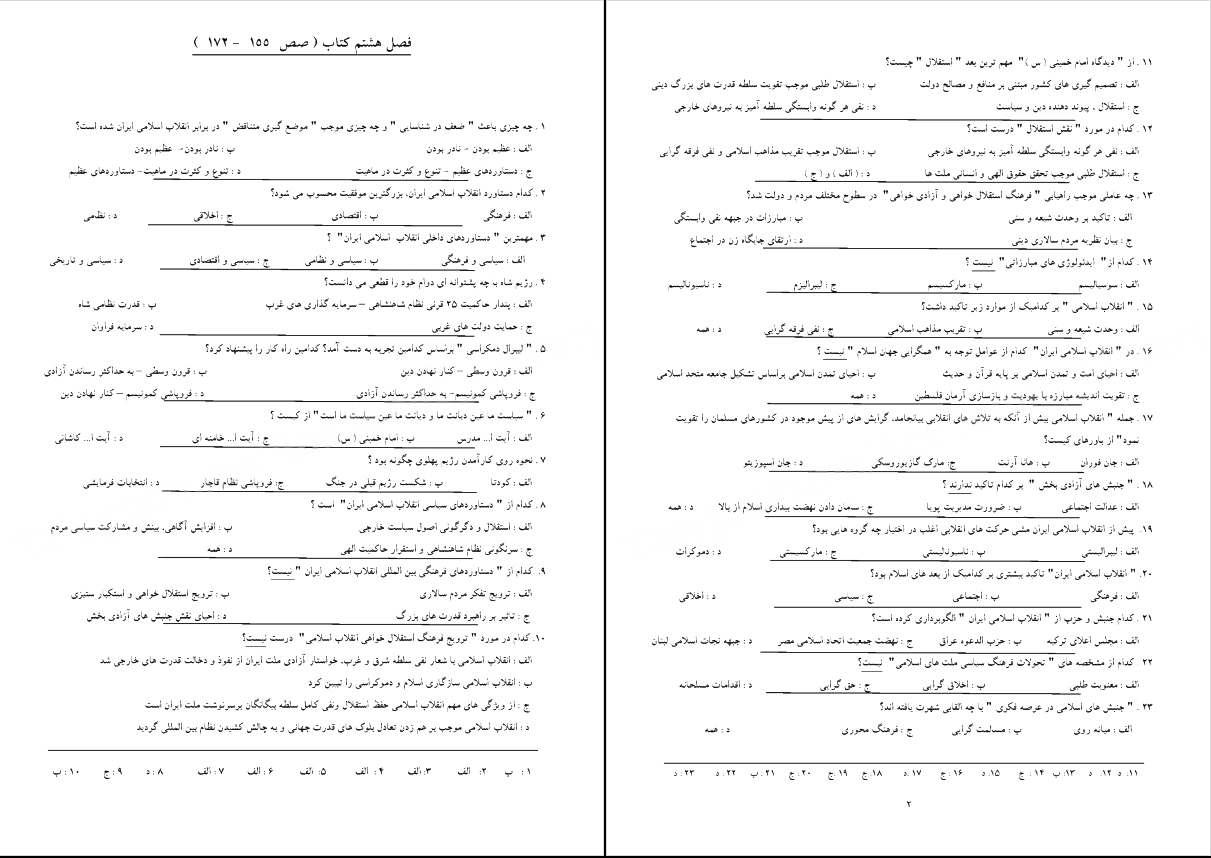 فصل هشتم کتاب ( صص ۱۵۵ - ۱۷۲ )
۱ . چه چیزی باعث " ضعف در شناسایی " و چه چیزی موجب " موضع گیری متناقض " در برابر انقلاب اسلامی ایران شده است؟
الف : عظیم بودن - نادر بودن ب : نادر بودن- عظیم بودن
ج : دستاوردهای عظیم - تنوع و کثرت در ماهیت د : تنوع و کثرت در ماهیت- دستاوردهای عظیم
۲ . کدام دستاورد انقلاب اسلامی ایران، بزرگترین موفقیت محسوب می شود؟
الف : فرهنگی ب : اقتصادی ج : اخلاقی د : نظامی
۳ . مهمترین " دستاوردهای داخلی انقلاب اسلامی ایران" ؟
الف : سیاسی و فرهنگی ب : سیاسی و نظامی ج : سیاسی و اقتصادی د : سیاسی و تاریخی
۴ . رژیم شاه با چه پشتوانه ای دوام خود را قطعی می دانست؟
الف : پندار حاکمیت ۲۵ قرنی نظام شاهنشاهی – سرمایه گذاری های غرب ب : قدرت نظامی شاه
ج : حمایت دولت های غربی د : سرمایه فراوان
۵ . " لیبرال دمکراسی " براساس کدامین تجربه به دست آمد؟ کدامین راه کار را پیشنهاد کرد؟
الف : قرون وسطی – کنار نهادن دین ب : قرون وسطی – به حداکثر رساندن آزادی
ج : فروپاشی کمونیسم- به حداکثر رساندن آزادی د : فروپاشی کمونیسم – کنار نهادن دین
۶ . " سیاست ما عین دیانت ما و دیانت ما عین سیاست ما است" از کیست ؟
الف : آیت ا... مدرس ب : امام خمینی ( س) ج : آیت ا... خامنه ای د : آیت ا... کاشانی
۷ . نحوه روی کارآمدن رژیم پهلوی چگونه بود ؟
الف : کودتا ب : شکست رژیم قبلی در جنگ ج: فروپاشی نظام قاجار د : انتخابات فرمایشی
۸ . کدام از " دستاوردهای سیاسی انقلاب اسلامی ایران" است ؟
الف : استقلال و دگرگونی اصول سیاست خارجی ب : افزایش آگاهی، بینش و مشارکت سیاسی مردم
ج : سرنگونی نظام شاهنشاهی و استقرار حاکمیت الهی د : همه
۹. کدام از " دستاوردهای فرهنگی بین المللی انقلاب اسلامی ایران " نیست؟
الف : ترویج تفکر مردم سالاری ب : ترویج استقلال خواهی و استکبار ستیزی
ج : تاثیر بر راهبرد قدرت های بزرگ د : احیای نقش جنبش های آزادی بخش
۱۰. کدام در مورد " ترویج فرهنگ استقلال خواهی انقلاب اسلامی" درست نیست؟
الف : انقلاب اسلامی با شعار نفی سلطه شرق و غرب، خواستار آزادی ملت ایران از نفوذ و دخالت قدرت های خارجی شد
ب : انقلاب اسلامی سازگاری اسلام و دموکراسی را تبیین کرد
ج : از ویژگی های مهم انقلاب اسلامی حفظ استقلال ونفی کامل سلطه بیگانگان برسرنوشت ملت ایران است
د : انقلاب اسلامی موجب بر هم زدن تعادل بلوک های قدرت جهانی و به چالش کشیدن نظام بین المللی گردید
۱: ب ۲: الف ۳: الف ۴ : الف ۵: الف ۶ : الف ۷ : الف ۸ : د ۹ : ج ۱۰ : ب
۱۱ . از " دیدگاه امام خمینی ( س )" مهم ترین بعد " استقلال " چیست؟
الف : تصمیم گیری های کشور مبتنی بر منافع و مصالح دولت ب : استقلال طلبی موجب تقویت سلطه قدرت های بزرگ دینی
ج : استقلال ، پیوند دهنده دین و سیاست د : نفی هر گونه وابستگی سلطه آمیز به نیروهای خارجی
۱۲ . کدام در مورد " نقش استقلال " درست است؟
الف : نفی هر گونه وابستگی سلطه آمیز به نیروهای خارجی ب : استقلال موجب تقریب مذاهب اسلامی و نفی فرقه گرایی
ج : استقلال طلبی موجب تحقق حقوق الهی و انسانی ملت ها د : ( الف ) و ( ج )
۱۳ . چه عاملی موجب راهیابی " فرهنگ استقلال خواهی و آزادی خواهی" در سطوح مختلف مردم و دولت شد؟
الف : تاکید بر وحدت شیعه و سنی ب : مبارزات در جبهه نفی وابستگی
ج : بیان نظریه مردم سالاری دینی د : ارتقای جایگاه زن در اجتماع
۱۴ . کدام از" ایدئولوژی های مبارزاتی" نیست ؟
الف : سوسیالیسم ب : مارکسیسم ج : لیبرالیزم د : ناسیونالیسم
۱۵ . " انقلاب اسلامی " بر کدامیک از موارد زیر تاکید داشت؟
الف : وحدت شیعه و سنی ب : تقریب مذاهب اسلامی ج : نفی فرقه گرایی د : همه
۱۶ . در " انقلاب اسلامی ایران" کدام از عوامل توجه به " همگرایی جهان اسلام " نیست ؟
الف : احیای امت و تمدن اسلامی بر پایه قرآن و حدیث ب : احیای تمدن اسلامی براساس تشکیل جامعه متحد اسلامی
ج : تقویت اندیشه مبارزه با یهودیت و بازسازی آرمان فلسطین د : همه
۱۷ . جمله " انقلاب اسلامی بیش از آنکه به تلاش های انقلابی بیانجامد، گرایش های از پیش موجود در کشورهای مسلمان را تقویت
نمود" از باورهای کیست؟
الف : جان فوران ب : هانا آرنت ج: مارک گازیوروسکی د : جان اسپوزیتو
۱۸ . " جنبش های آزادی بخش " بر کدام تاکید ندارند ؟
الف : عدالت اجتماعی ب : ضرورت مدیریت پویا ج : سامان دادن نهضت بیداری اسلام از بالا د : همه
۱۹. پیش از انقلاب اسلامی ایران مشی حرکت های انقلابی اغلب در اختیار چه گروه هایی بود؟
الف : لیبرالیستی ب : ناسیونالیستی ج : مارکسیستی د : دموکرات
۲۰. " انقلاب اسلامی ایران" تاکید بیشتری بر کدامیک از بعد های اسلام بود؟
الف : فرهنگی ب : اجتماعی ج : سیاسی د : اخلاقی
۲۱ . کدام جنبش و حزب از " انقلاب اسلامی ایران " الگوبرداری کرده است؟
الف : مجلس اعلای ترکیه ب : حزب الدعوه عراق ج : نهضت جمعیت اتحاد اسلامی مصر د : جبهه نجات اسلامی لبنان
۲۲ . کدام از مشخصه های " تحولات فرهنگ سیاسی ملت های اسلامی" نیست؟
الف : معنویت طلبی ب : اخلاق گرایی ج : حق گرایی د : اقدامات مسلحانه
۲۳ . " جنبش های اسلامی در عرصه فکری " با چه القابی شهرت یافته اند؟
الف : میانه روی ب : مسالمت گرایی ج : فرهنگ محوری د : همه
۱۱: د ۱۲: د ۱۳: ب ۱۴ : ج ۱۵: د ۱۶ : ج ۱۷ : د ۱۸: ج ۱۹: ج ۲۰ : ج ۲۱ : ب ۲۲ : د ۲۳ : د
۲